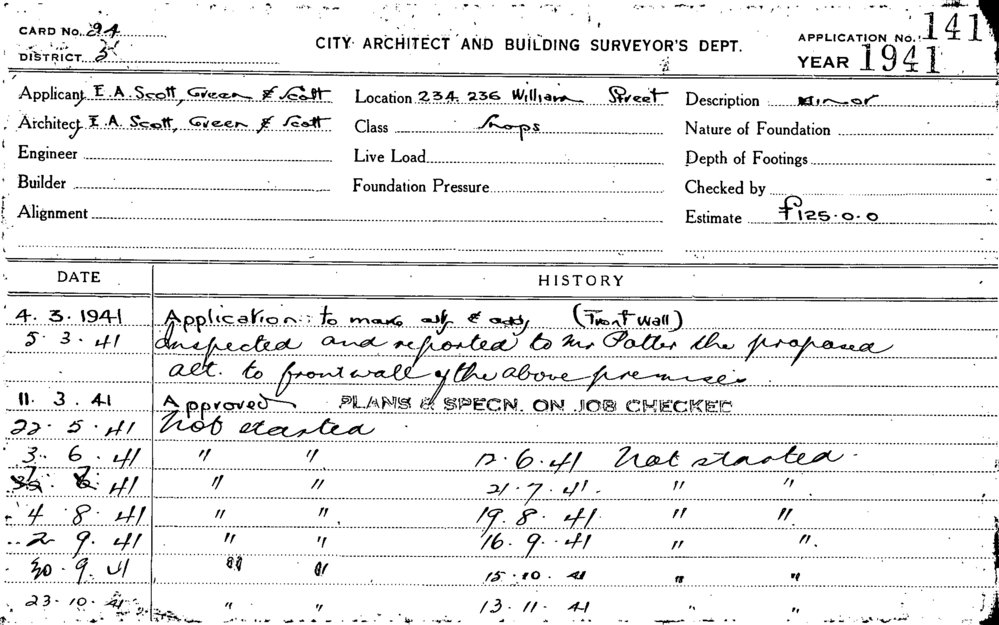 CARD No. 24
DISTRICT 3
CITY ARCHITECT AND BUILDING SURVEYOR'S DEPT.
APPLICATION No. 141
YEAR 1941
Applicant E. A. Scott, Green & Scott
Location 234 236 William Street
Description Minor
Architect E. A. Scott, Green & Scott
Class Shops
Nature of Foundation
Engineer
Live Load
Depth of Footings
Builder
Foundation Pressure
Checked by
Alignment
Estimate £125.0.0
DATE HISTORY
4. 3. 1941 Application to make alt & adds (Front Wall)
5. 3. 41 Inspected and reported to Mr Potter the proposed
alt. to front wall of the above premises
11. 3. 41 Approved PLANS & SPECN. ON JOB CHECKED
22. 5. 41 Not started
3. 6. 41 " " 12. 6. 41 Not started.
7. 41 " " 21. 7. 41. " "
4. 8. 41 " " 19. 8. 41 " "
2. 9. 41 " " 16. 9. 41 " "
30. 9. 41 " " 15. 10. 41 " "
23. 10. 41 " " 13. 11. 41 " "